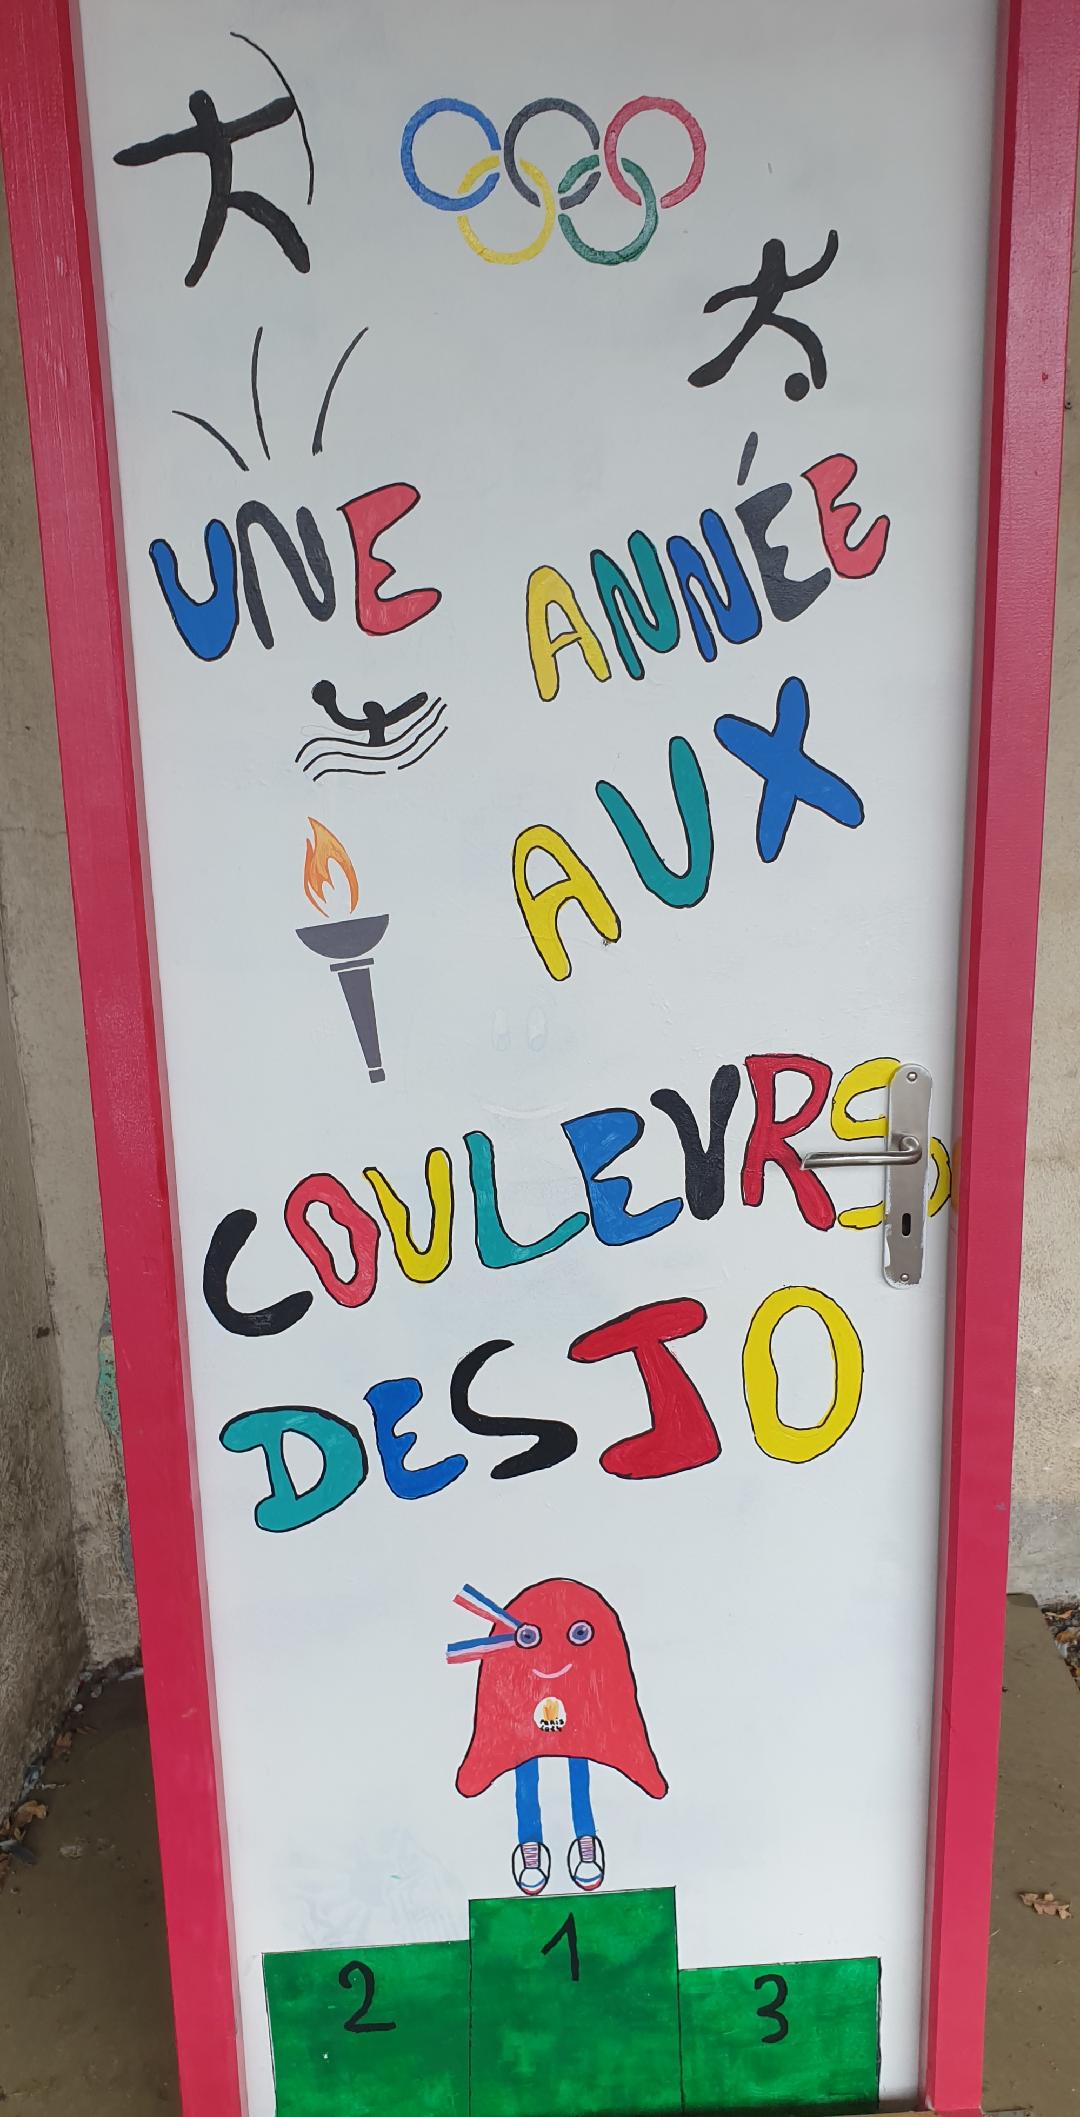 UNE ANNÉE
AUX
COULEURS
DES JO
Paris
2024
1
2
3